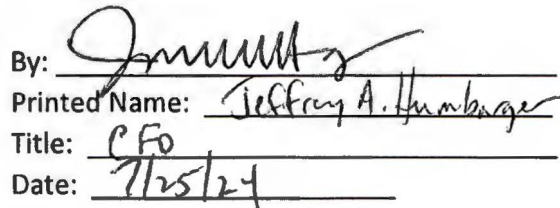 By:
Printed Name: Jeffrey A. Humbarger
Title: CFO
Date: 7/25/24